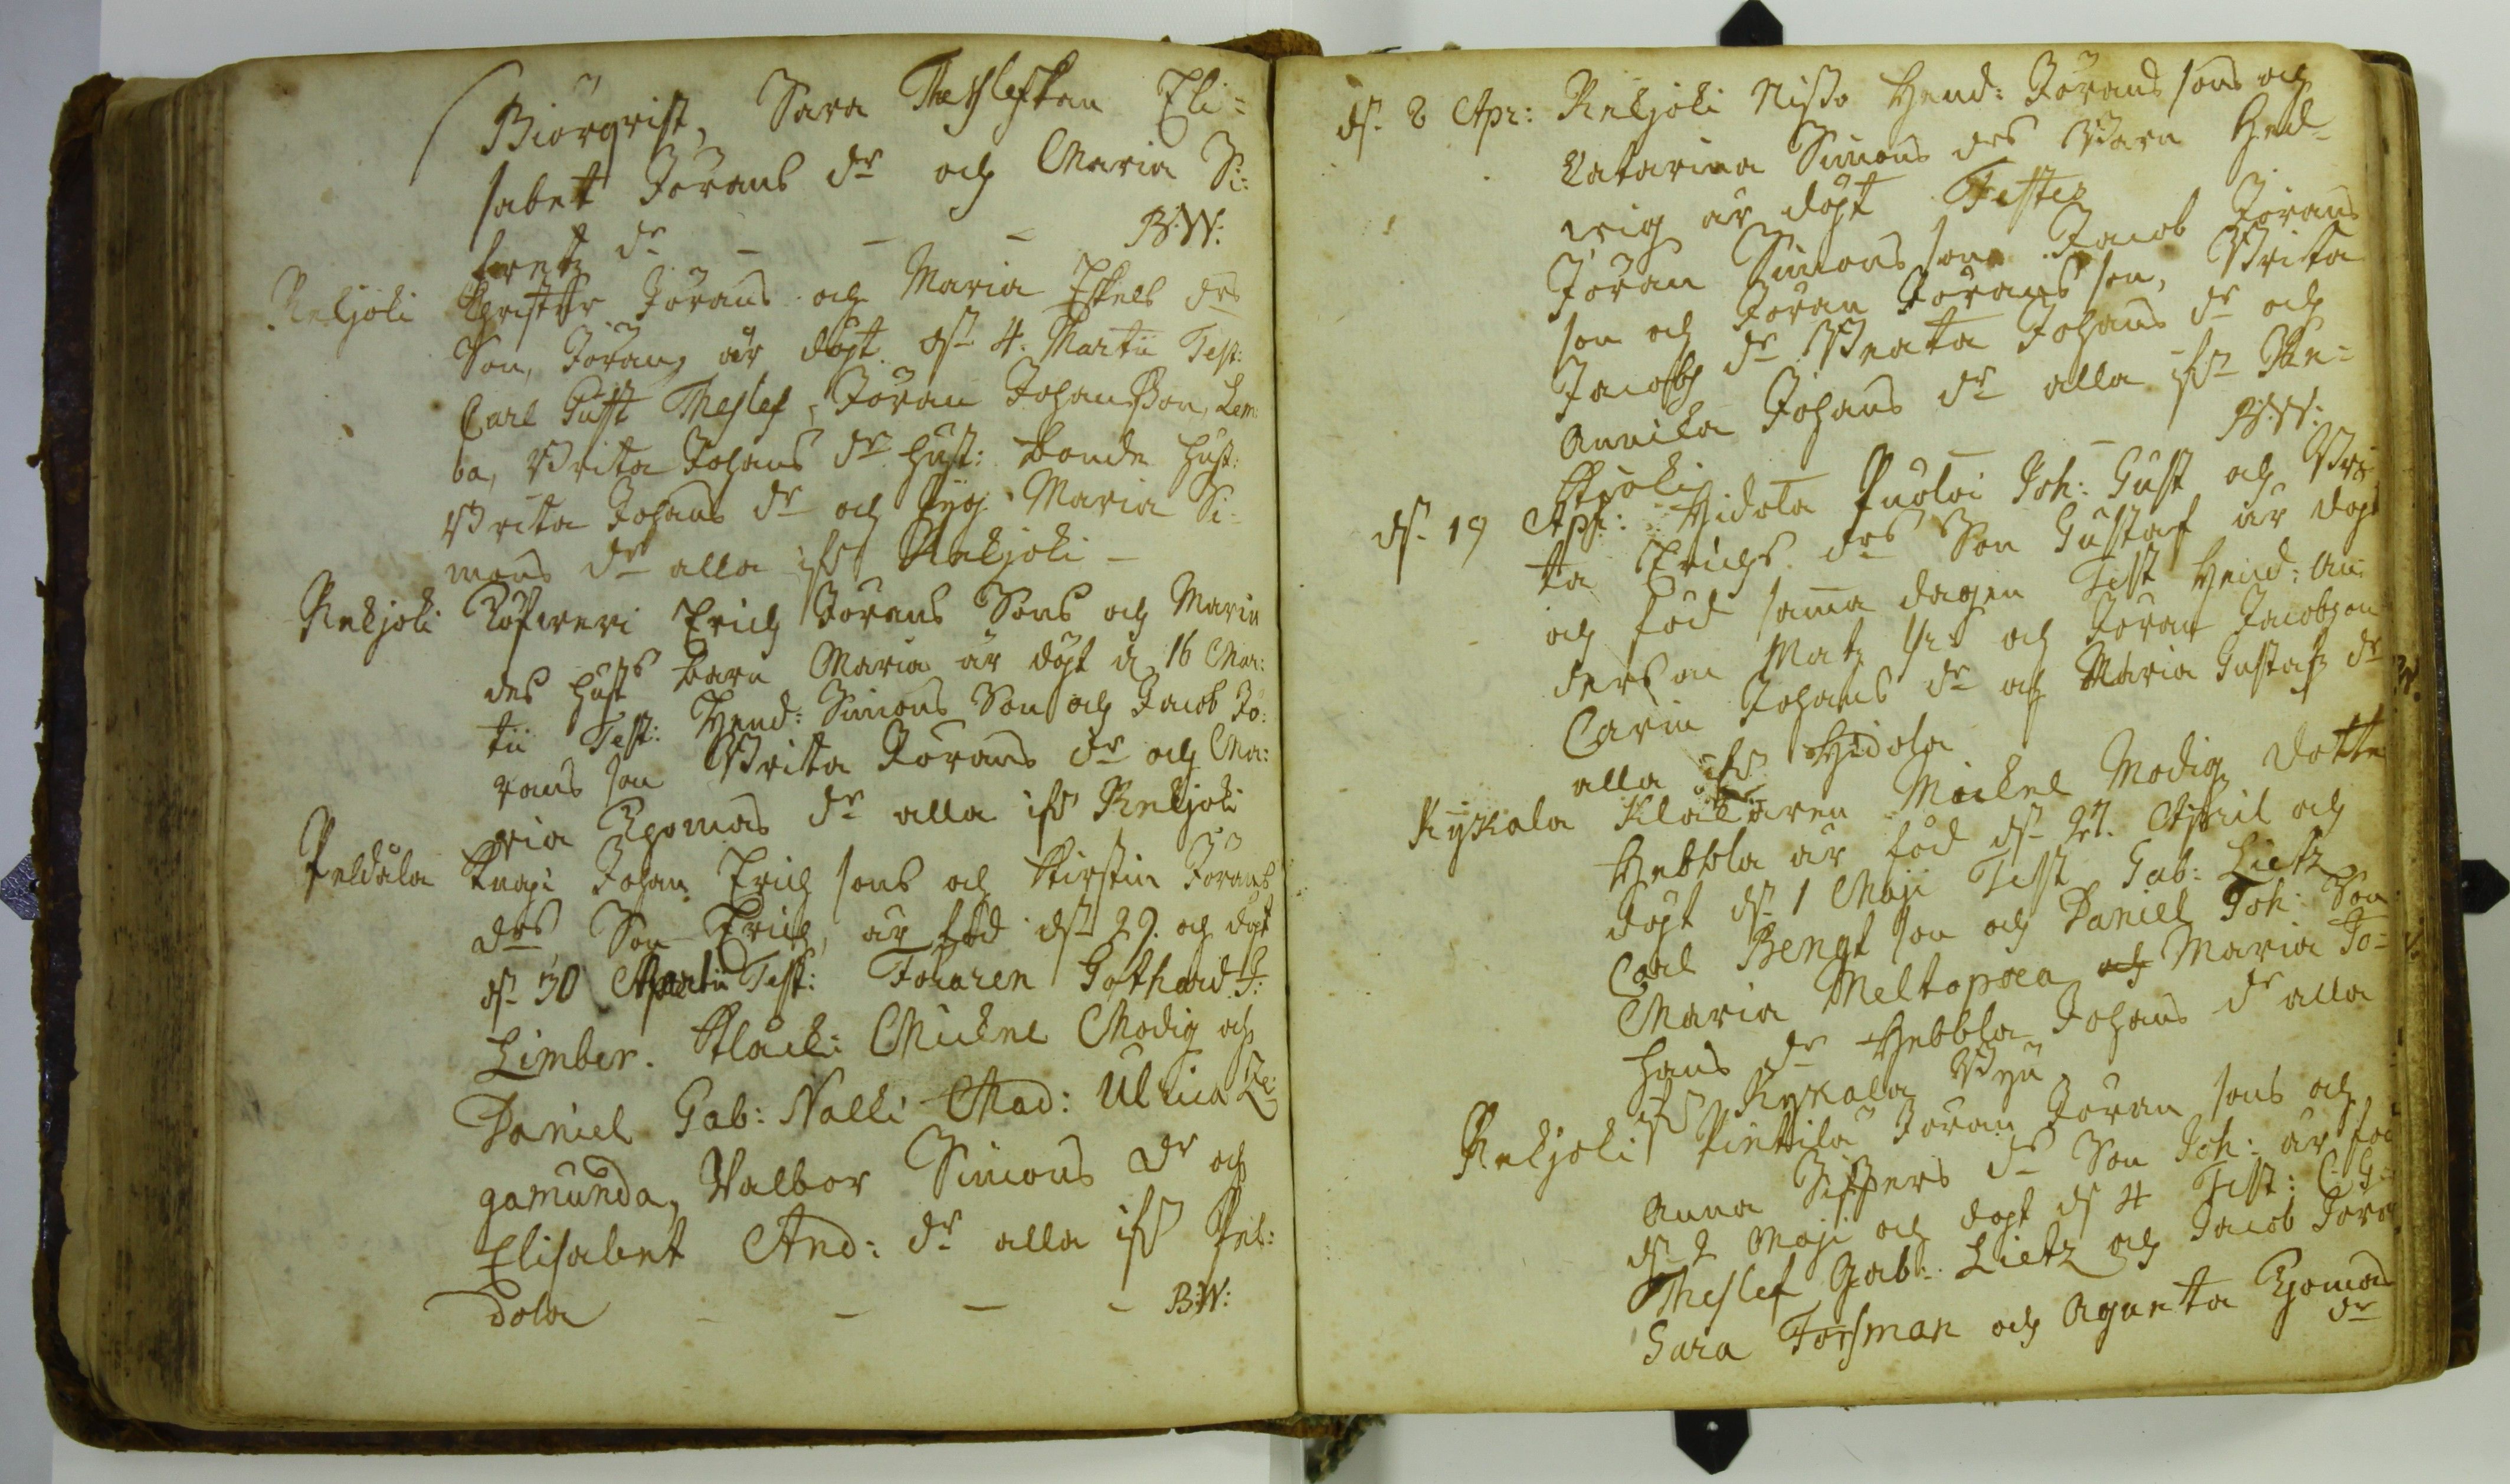 Biörqvist, Sara Thesleftan Eli=
sabet Jörans dr och Maria Si:
fretz dr - - - B:W:
Rekjoki Christer Jörans och Maria Eskels drs
Son, Jöran, är döpt dn 4. Martii Test:
Carl Gust Theslef, Jöran Johansson, Lem:
ba, Brita Johans dr hust: bonde hust:
Brita Johans dr och pyg. Maria Si=
mons dr alla ifr Rekjoki -
Rekjoki Erich Jörans Sons och Maria
des husts barn Maria är döpt d 16 Mar:
tii Test: Hend: Simons Son och Jacob Jö:
rans son Brita Jörans dr och Ma:
ria Thomas dr alla ifr Rekjoki
Peldåla Knapi Johan Erich sons och Kirstin Jörans
drs Son Erich, är född dn 29. och döpt
dn 30 Martii Test: Fouaren Gothard J:
Limber. Klåck: Mickel Modig och
Daniel Gab: Nalli Mad: Ulrica Re
gamunda, Walbor Simons dr och
Elisabet And: dr alla ifr Pel:
dola - - - B:W:
dn. 2 Apr: Rekjoki Nisso Hend: Jörans sons och
Catarina Simons drs Barn Hed-
wig är döpt Testes
Jöran Simons son Jacob Jörans
son och Jöran Jörans son, Brita
Jacobs dr Beata Johans dr och
Annika Johans dr alla ifr Re=
kjoki - - B:W:
dn. 19 Apr: Hidola Puoloi Joh: Gust och Bri
ta Erichs drs Son Gustaf är döpt
och född samma dagen Test Hend: An
derson Matz och Jöran Jacobson
Carin Johans dr och Maria Gustafs dr
alla ifr Hidola
Kyrkola Klåckaren Mickel Modig dotter
Hebbla är född dn 27. April och
döpt dn 1 Maji Test Gab: Lietz
Carl Bengt son och Daniel Joh: Son
Maria Meltopaea och Maria Jo=
hans dr Hebbla Johans dr alla
ifr Kyrkola Byn
Rekjoki Pinttilä Jöran Jöran sons och
Anna Siffers dr Son Joh: är föd
dn 2 Maji och döpt dn 4 Test: C: G:
Theslef Gab: Lietz och Jacob Jöra
Sara Forsman och Agneta Thomas
dr